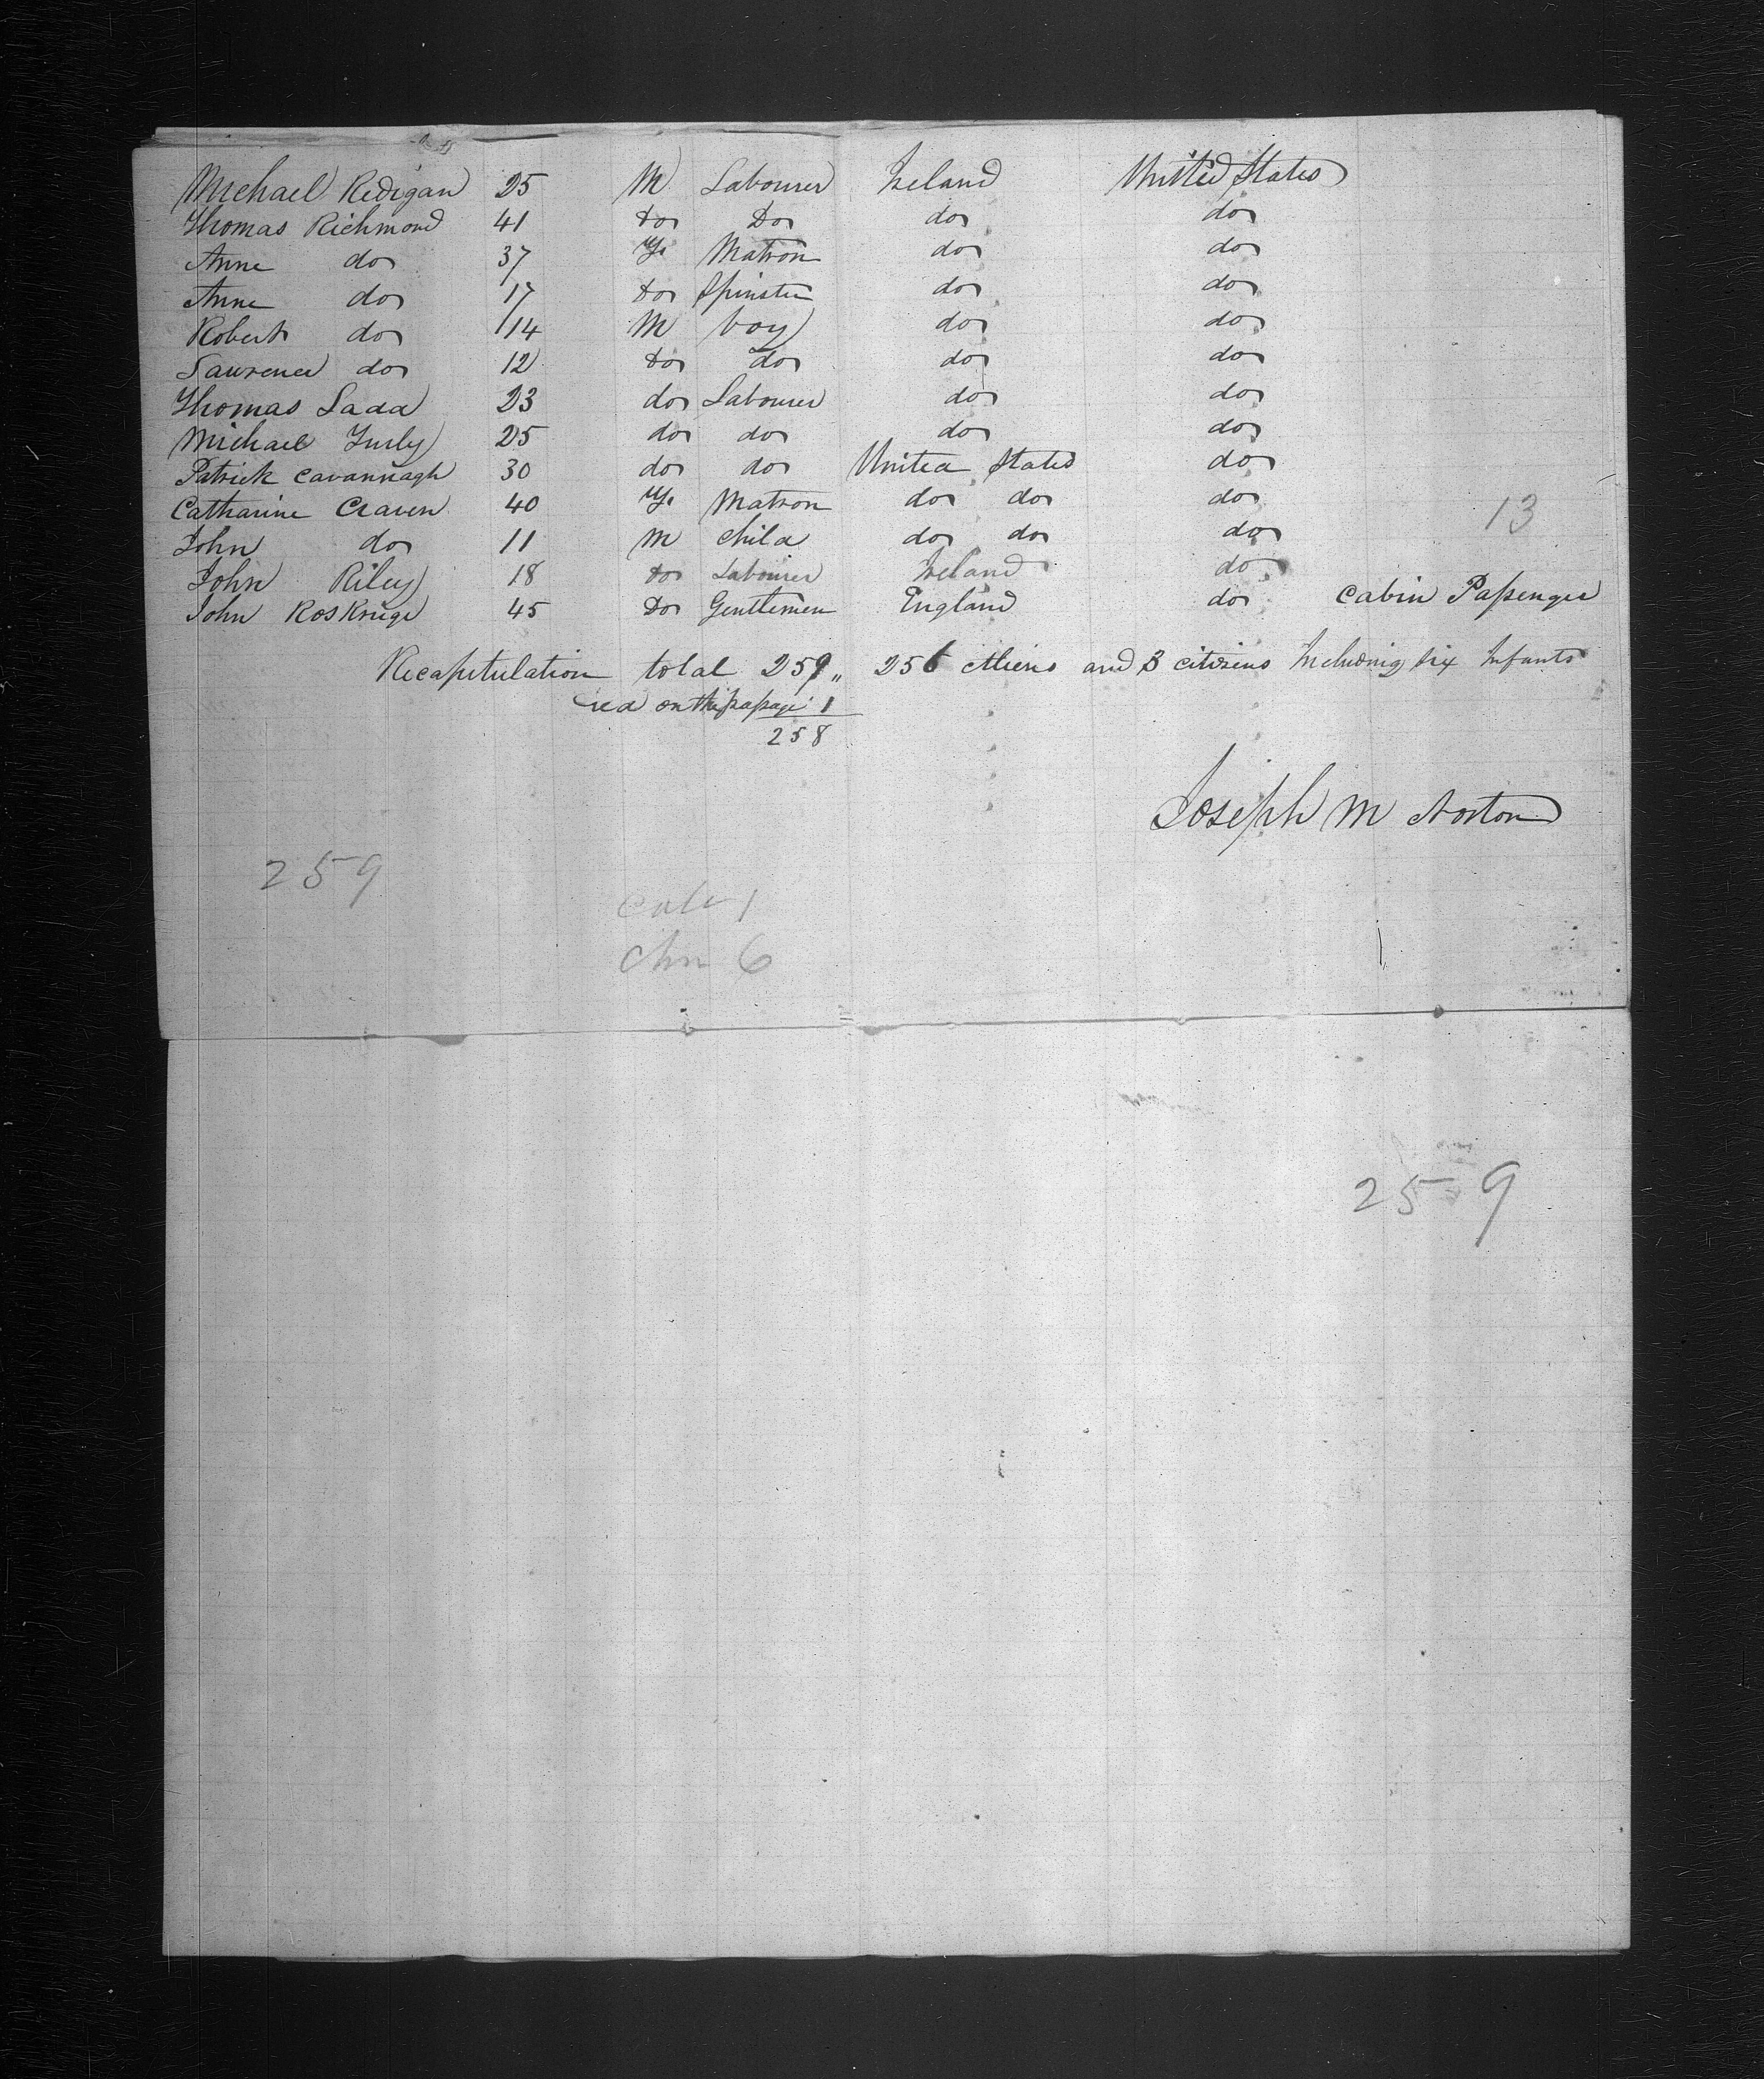 Michael Redigan 25 M Labourer Ireland United States
Thomas Richmond 41 Do Do do do
Anne do 37 F Matron do do
Anne do 17 Do Spinster do do
Robert do 14 M boy do do
Laurence do 12 Do do do do
Thomas Lada 23 do Labourer do do
Michael 25 do do do do
Patrick Cavannagh 30 do do United States do
Catharine Craven 40 F Matron do do do
13
John do 11 M Child do do do
John Riley 18 Do Labourer Ireland do
John Roskruge 45 Do Gentlemen England do Cabin Passenger
Recapitulation total 259 " 256 Aliens and 3 citizens Including Six Infants
on the passage 1
258
Joseph M Norton
259
1
6
259